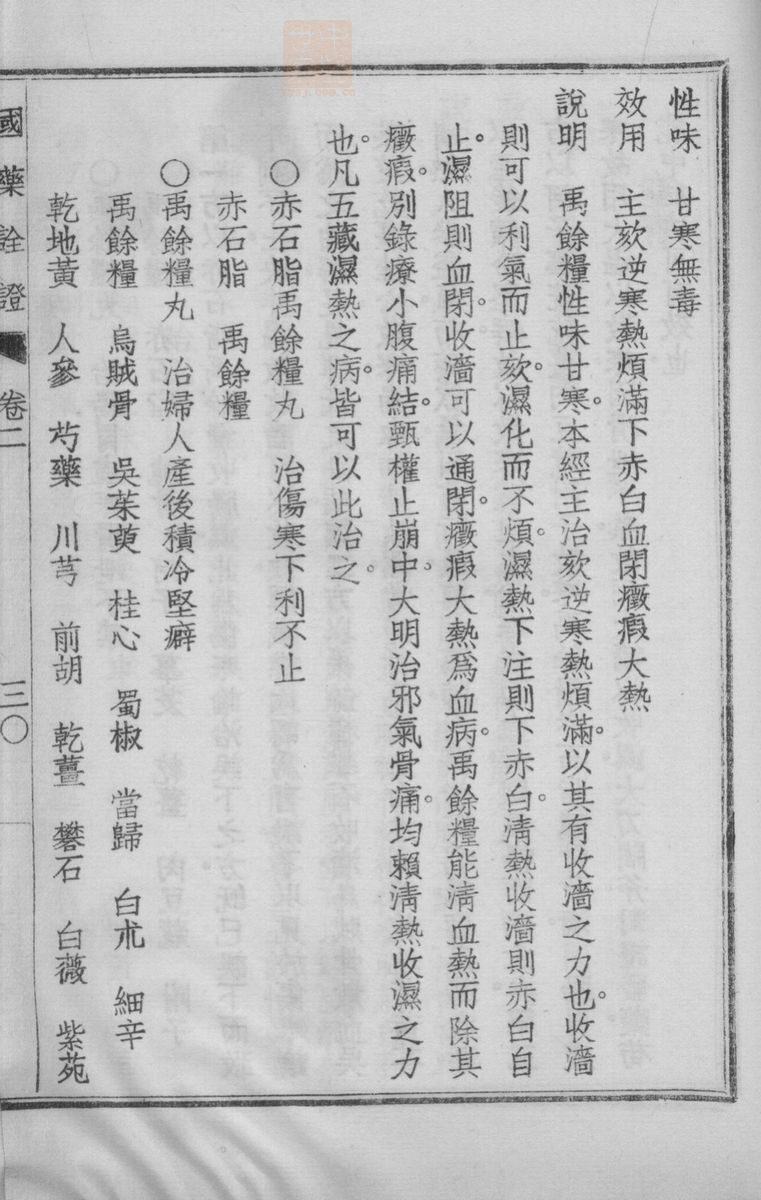 性味　甘寒無毒
效用　主欬逆寒熱煩滿下赤白血閉癥瘕大熱
說明　禹餘糧性味甘寒。本經主治欬逆寒熱煩滿。以其有收濇之力也。收濇
則可以利氣而止欬。濕化而不煩。濕熱下注則下赤白。淸熱收濇則赤白自
止。濕阻則血閉。收濇可以通閉。癥瘕大熱爲血病。禹餘糧能淸血熱而除其
癥瘕。別錄療小腹痛結。甄權止崩中。大明治邪氣骨痛。均賴淸熱收濕之力
也。凡五藏濕熱之病。皆可以此治之。
○赤石脂禹餘糧丸　治傷寒下利不止
赤石脂　禹餘糧
○禹餘糧丸　治婦人產後積冷堅癖
禹餘糧　烏賊骨　吳茱萸　桂心　蜀椒　當歸　白朮　細辛
乾地黃　人參　芍藥　川芎　前胡　乾薑　礬石　白薇　紫苑
國藥詮證　卷二　三〇